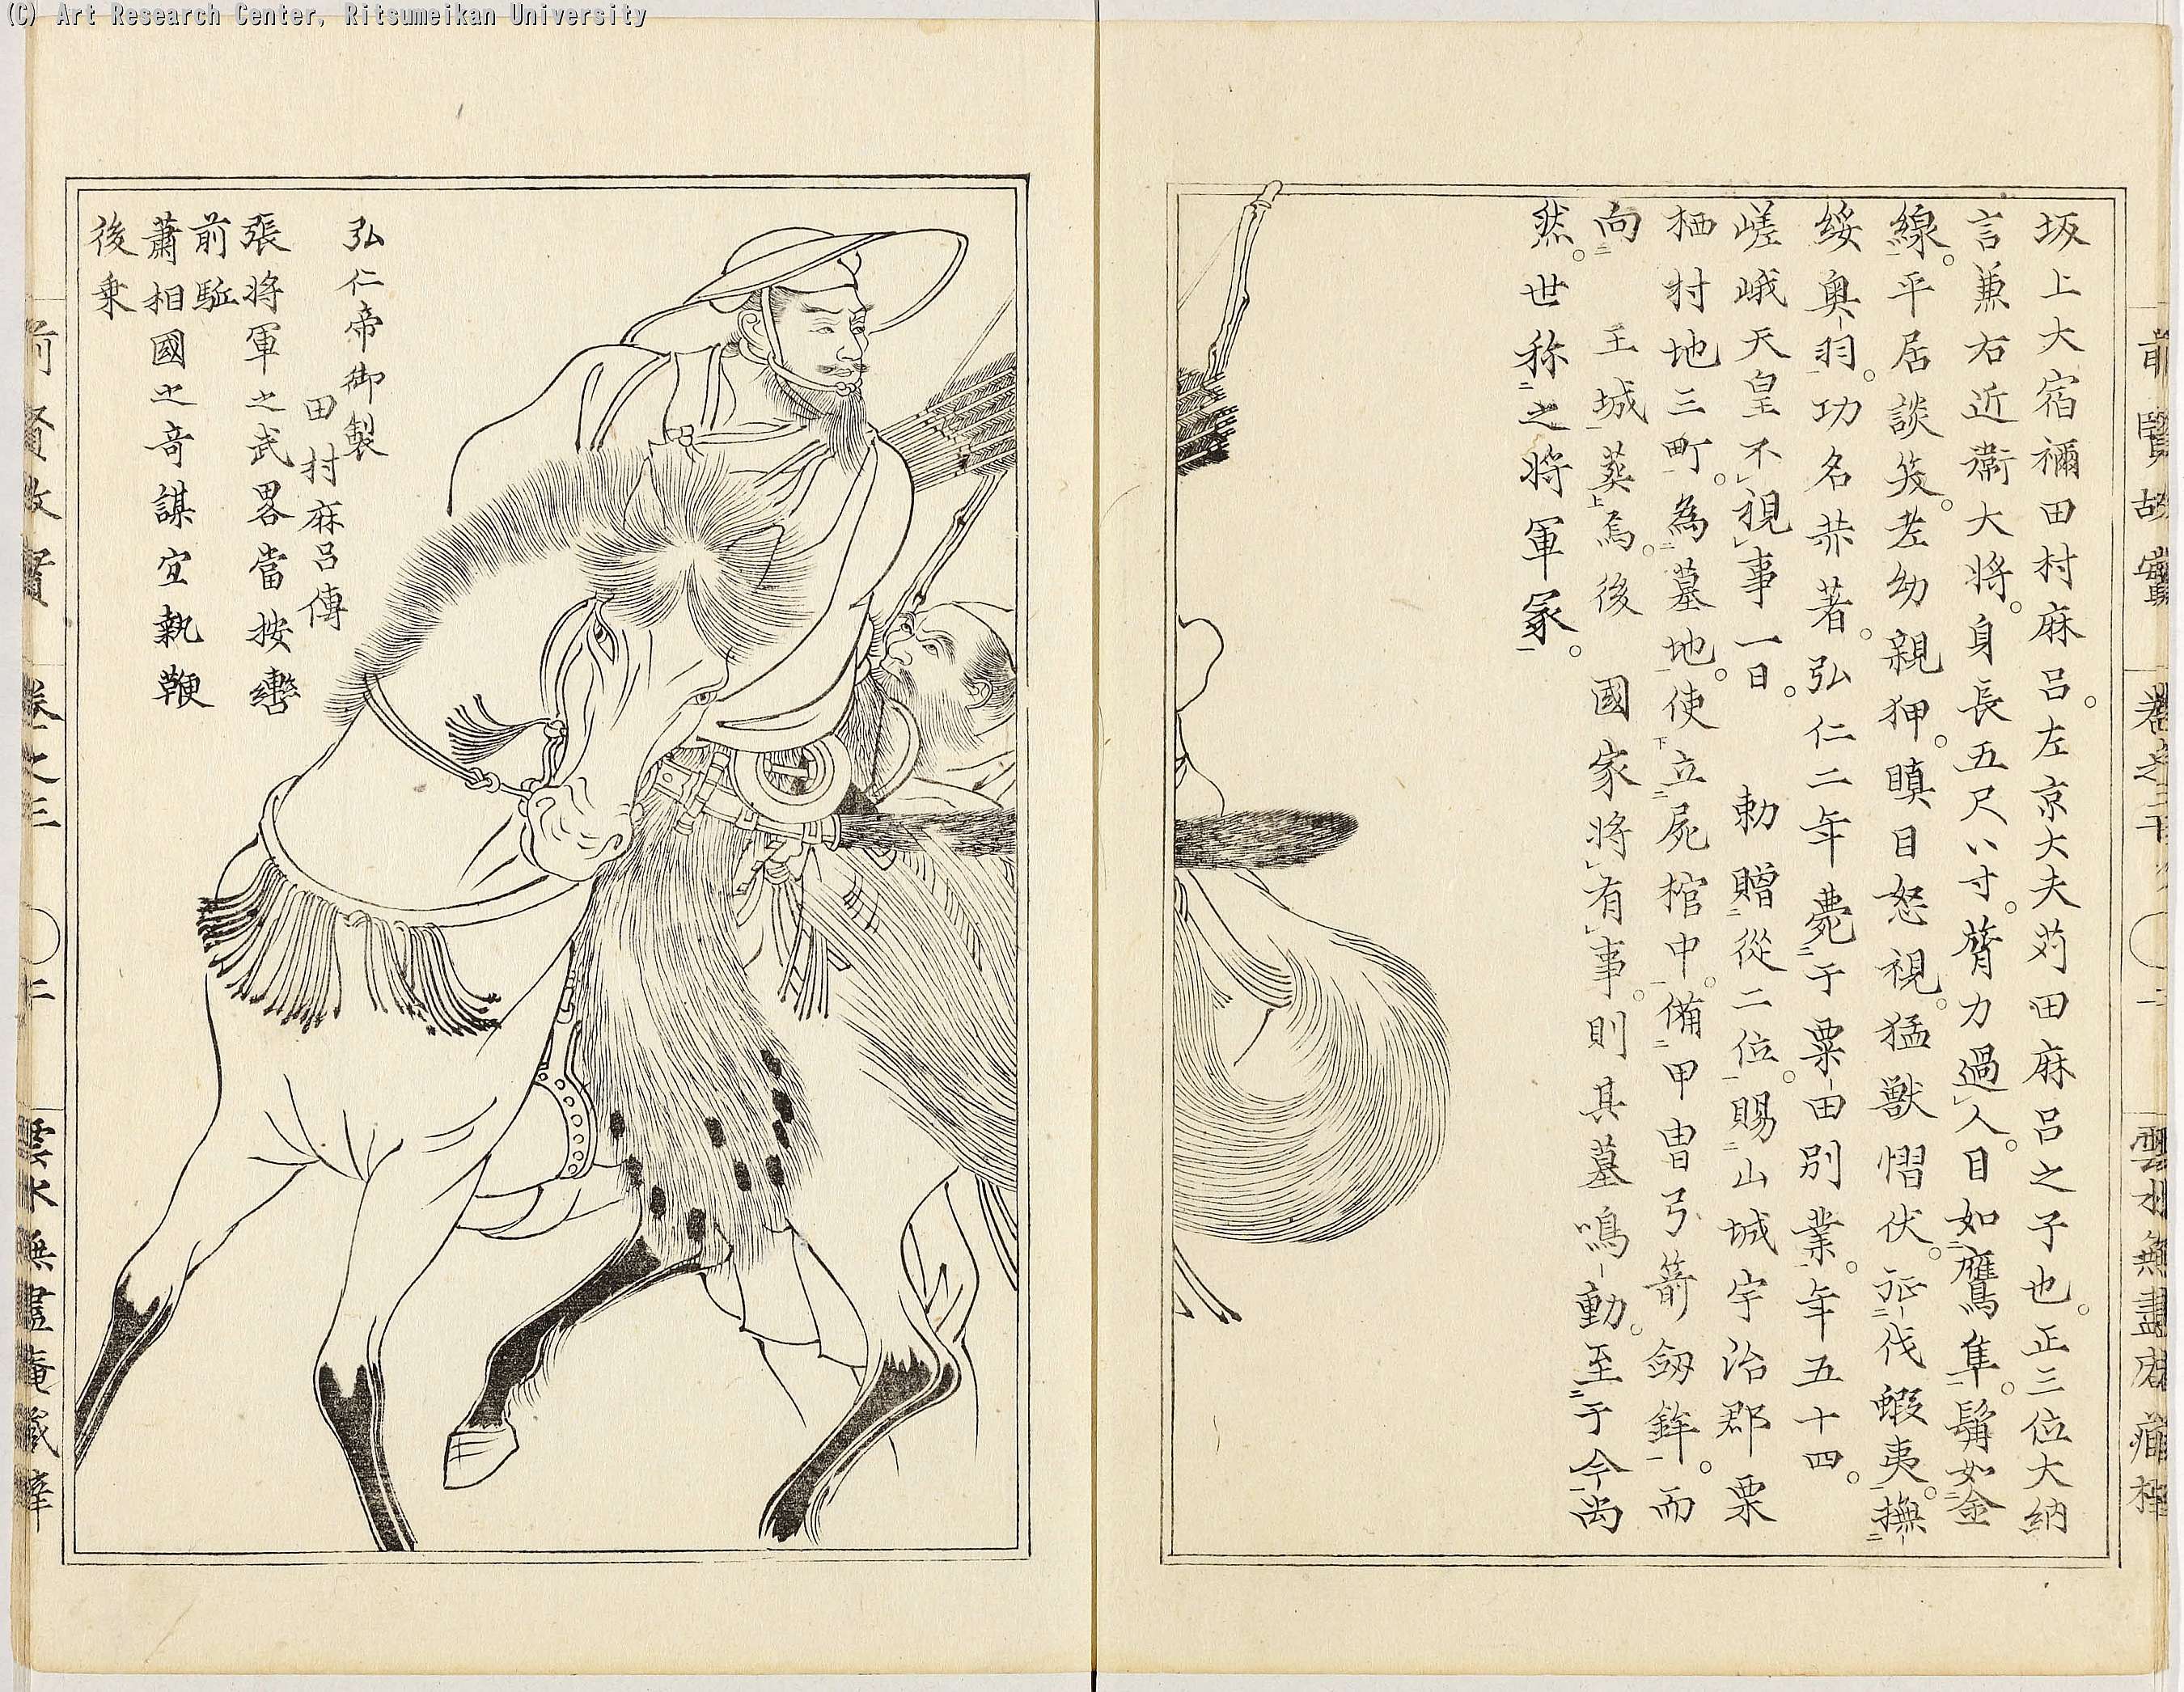 (C) Art Research Center, Ritsumeikan University
坂上大宿禰田村麻呂。左京大夫苅田麻呂之子也。正三位大納
言兼右近衞大將。身長五尺八寸。膂力過人。目如鷹隼。鬚如金
線。平居談笑。老幼親狎。瞋目怒視。猛獣慴伏。征伐蝦夷。撫
綏奥羽。功名恭著。弘仁二年薨于粟田別業。年五十四。
嵯峨天皇不視事一日。　勅贈從二位。賜山城宇治郡栗
栖村地三町。為墓地。使立屍棺中。備甲冑弓箭劔鉾。而
向　王城葬焉。後　國家將有事。則其墓鳴動。至于今尚
然。世称之將軍冢。
弘仁帝御製
田村麻呂傳
張將軍之武畧當按轡
前駈
蕭相國之奇謀宜執鞭
後乗
前賢故實　卷之三　二　雲水無盡庵藏梓